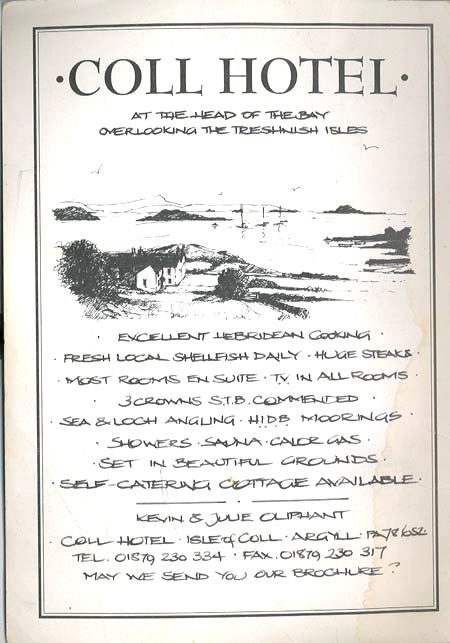 ·COLL HOTEL·
AT THE HEAD OF THE BAY
OVERLOOKING THE TRESHNISH ISLES
· EXCELLENT HEBRIDEAN COOKING ·
· FRESH LOCAL SHELLFISH DAILY · HUGE STEAKS ·
· MOST ROOMS EN SUITE · T.V. IN ALL ROOMS ·
· 3 CROWNS S.T.B. COMMENDED ·
· SEA & LOCH ANGLING · H.I.D.B. MOORINGS ·
· SHOWERS · SAUNA · CALOR GAS ·
· SET IN BEAUTIFUL GROUNDS ·
· SELF-CATERING COTTAGE AVAILABLE ·
KEVIN & JULIE OLIPHANT
· COLL HOTEL · ISLE of COLL · ARGYLL · PA78 6SZ ·
TEL. 01879 230 334 · FAX. 01879 230 317
MAY WE SEND YOU OUR BROCHURE?